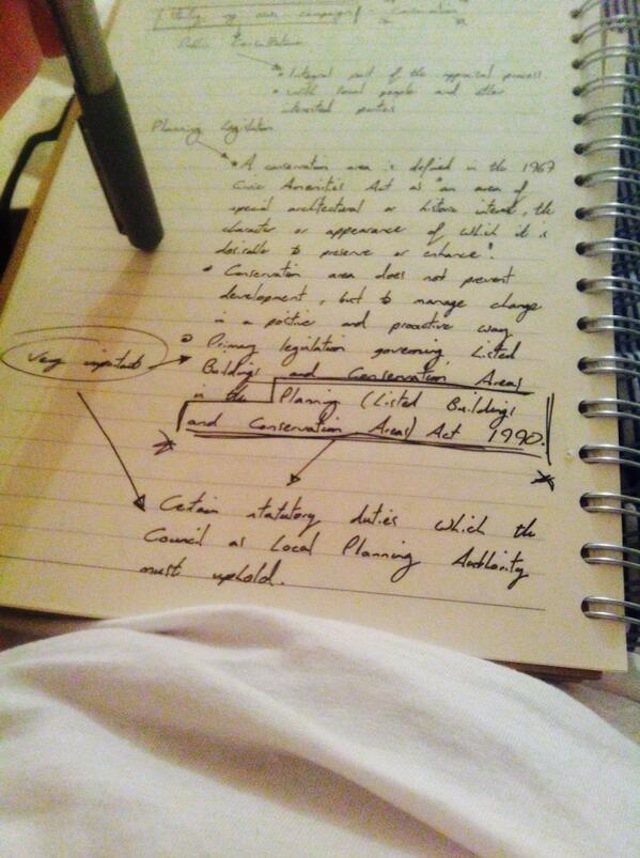 Conservation
Public Consultation
• Integral part of the appraisal process
• with local people and other
interested parties
Planning legislation
• A conservation area is defined in the 1967
Civic Amenities Act as "an area of
special architectural or historic interest, the
character or appearance of which it is
desirable to preserve or enhance".
• Conservation area does not prevent
development, but to manage change
in a positive and proactive way
• Primary legislation governing Listed
Buildings and Conservation Areas
Very important
in the Planning (Listed Buildings
and Conservation Areas) Act 1990.
Certain statutory duties which the
Council as Local Planning Authority
must uphold.